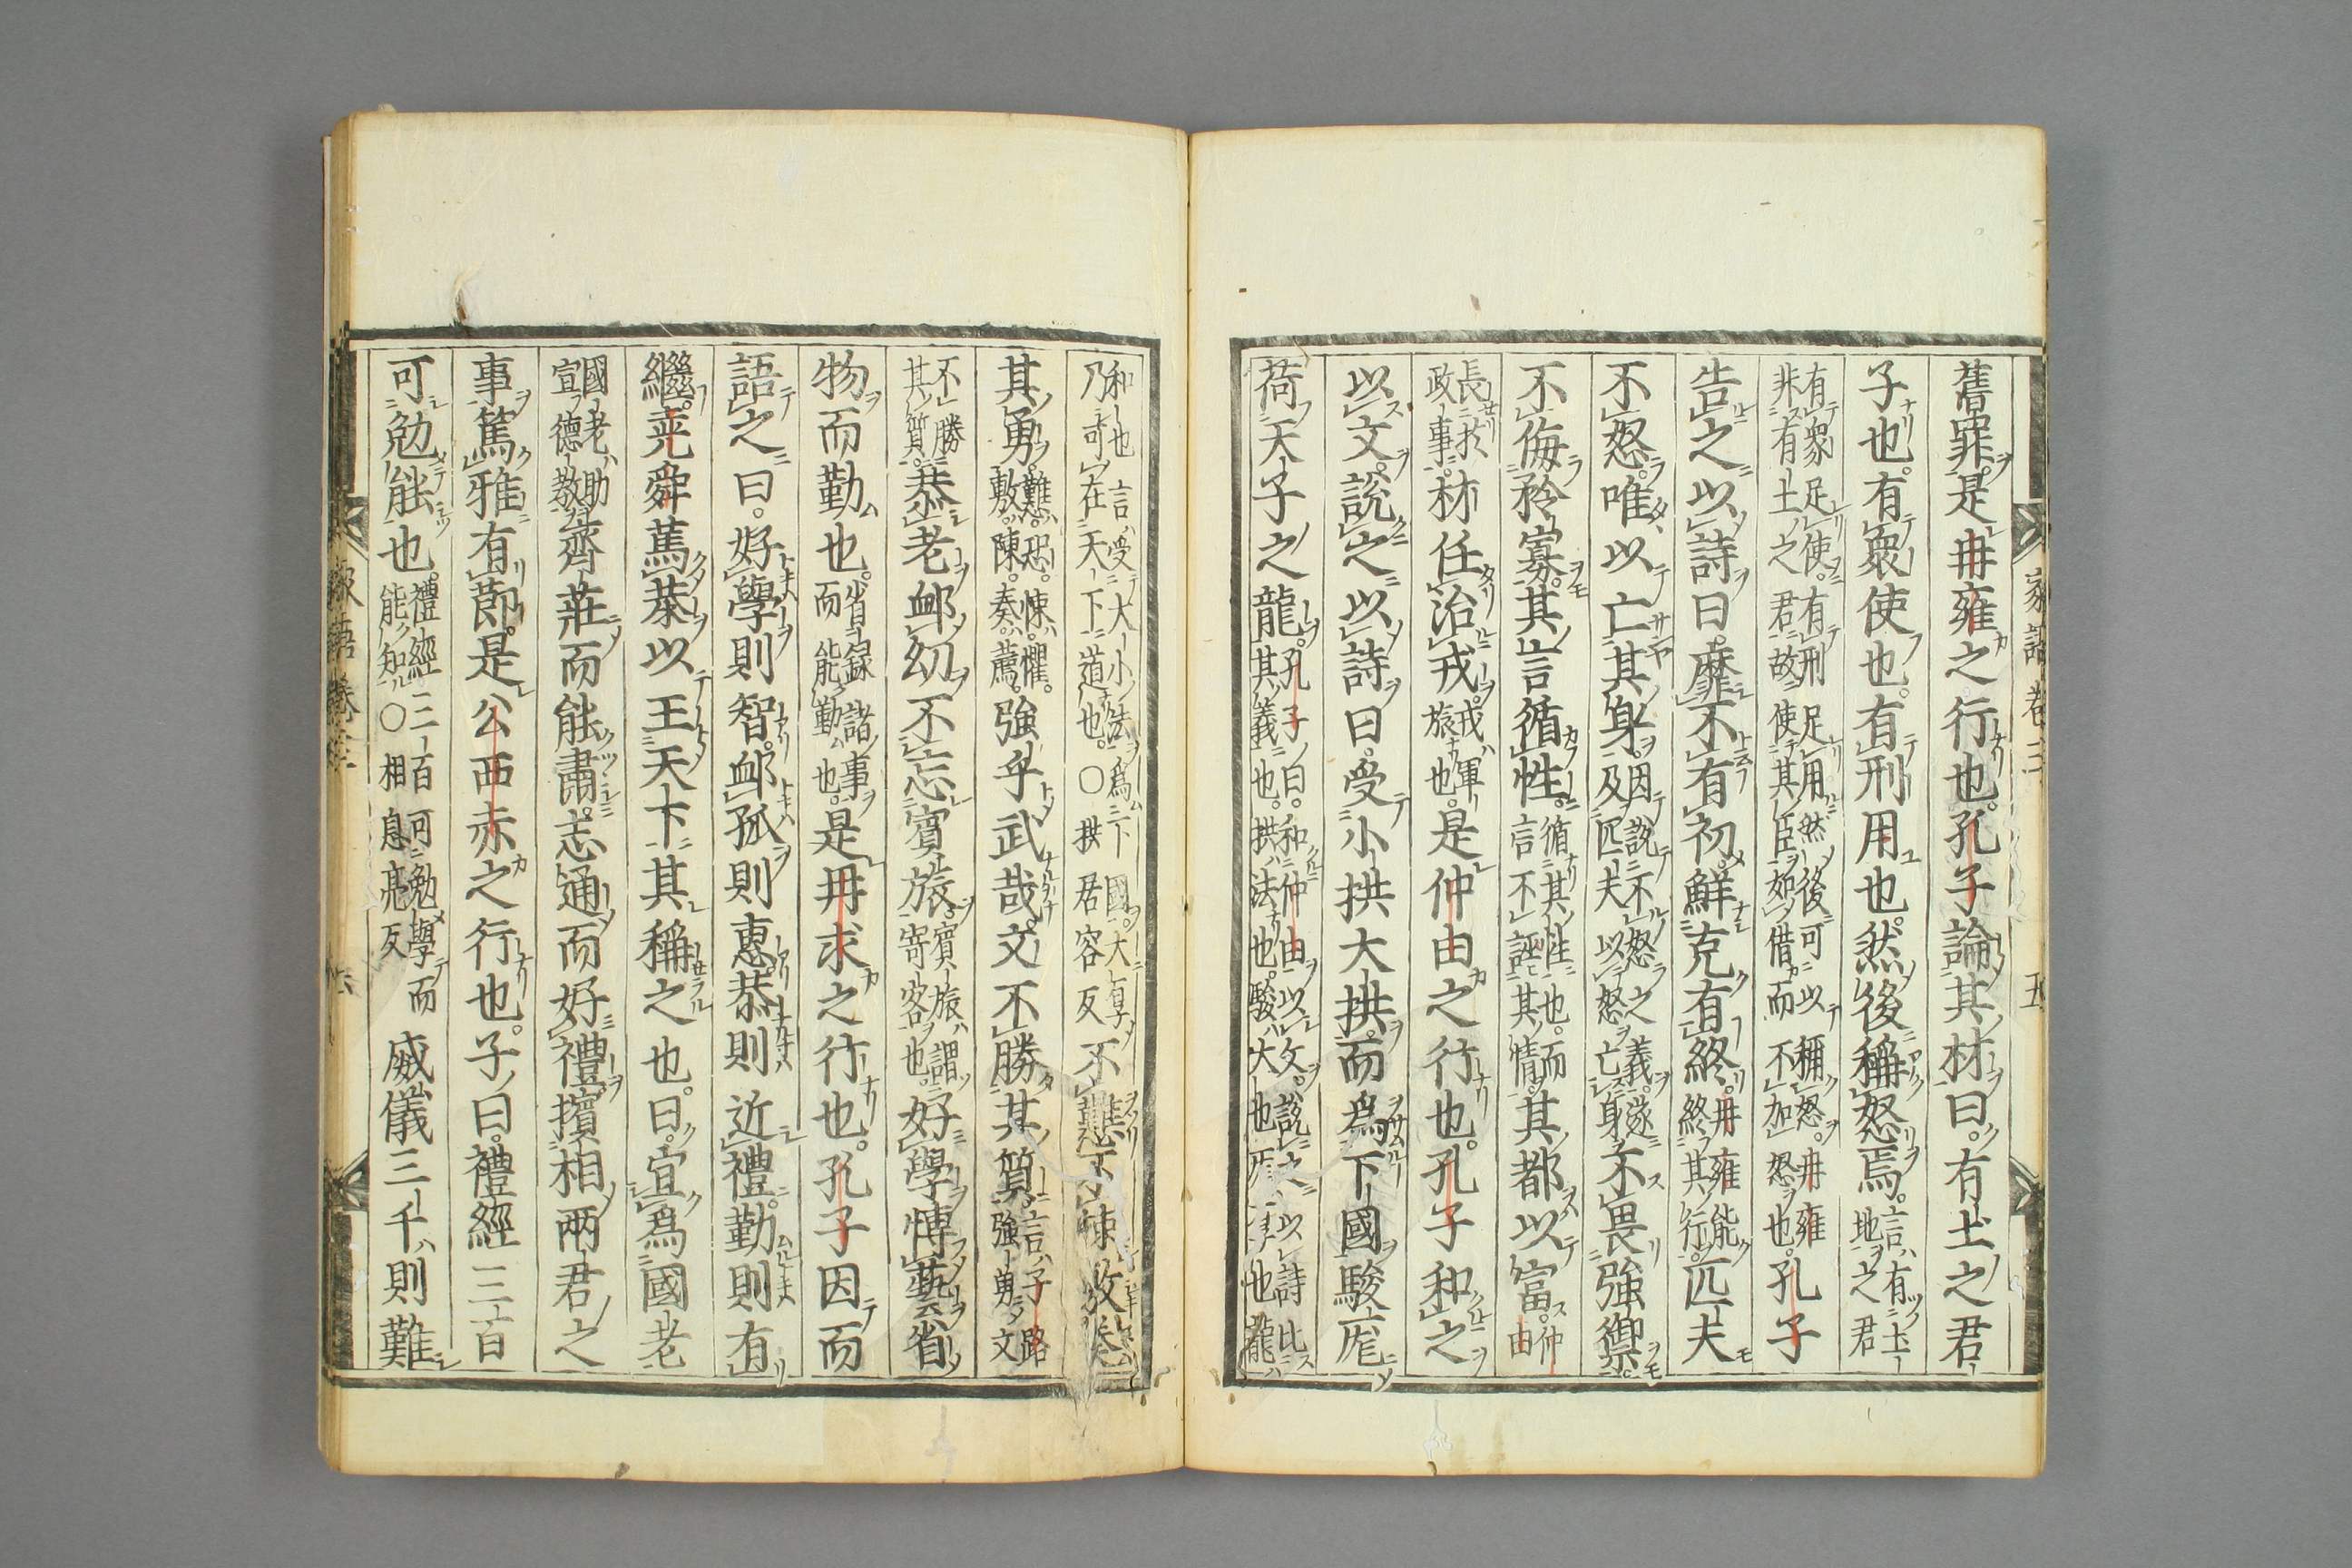 舊罪是冉雍之行也孔子論其材曰有土之君
子也有衆使也有刑用也然後稱怒焉言有土地之君
有衆足使有刑足用然後可以稱怒冉雍非有土之君故使其臣如借而不加怒也孔子
告之以詩曰靡不有初鮮克有終冉雍能終其行匹夫
不怒唯以亡其身因說不怒之義遂及匹夫以怒亡身不畏強禦
不侮矜寡其言循性循其性也而言不誣其情其都以富仲由
長於政事材任治戎戎軍旅也是仲由之行也孔子和之
以文說之以詩曰受小拱大拱而爲下國駿厖
荷天子之龍孔子曰和仲由以文說之以詩比其義也拱法也駿大也厖厚也龍
和也言受大小法爲下國大厚乃可在天下道也〇拱君容反不戁不悚敷奏
其勇戁恐悚懼敷陳奏薦強乎武哉文不勝其質言子路強勇文
不勝其質恭老卹幼不忘賓旅賓旅謂寄客也好學博藝省
物而勤也省録諸事而能勤也是冉求之行也孔子因而
語之曰好學則智卹孤則惠恭則近禮勤則有
繼堯舜篤恭以王天下其稱之也曰宜爲國老
國老助宣德教齊莊而能肅志通而好禮擯相兩君之
事篤雅有節是公西赤之行也子曰禮經三百
可勉能也禮經三百可勉學而能知〇相息亮反威儀三千則難
家語卷三 五